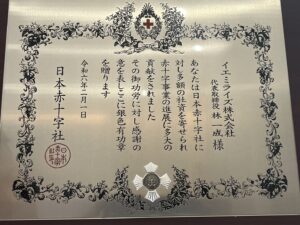 イエミライズ株式会社
代表取締役 林 一成 様
あなたは日本赤十字社に
対し多額の社資を寄せられ
赤十字事業の進展に多大の
貢献をされました
その御功労に対し感謝の
意を表しここに銀色有功章
を贈ります
令和六年二月一日
日本赤十字社